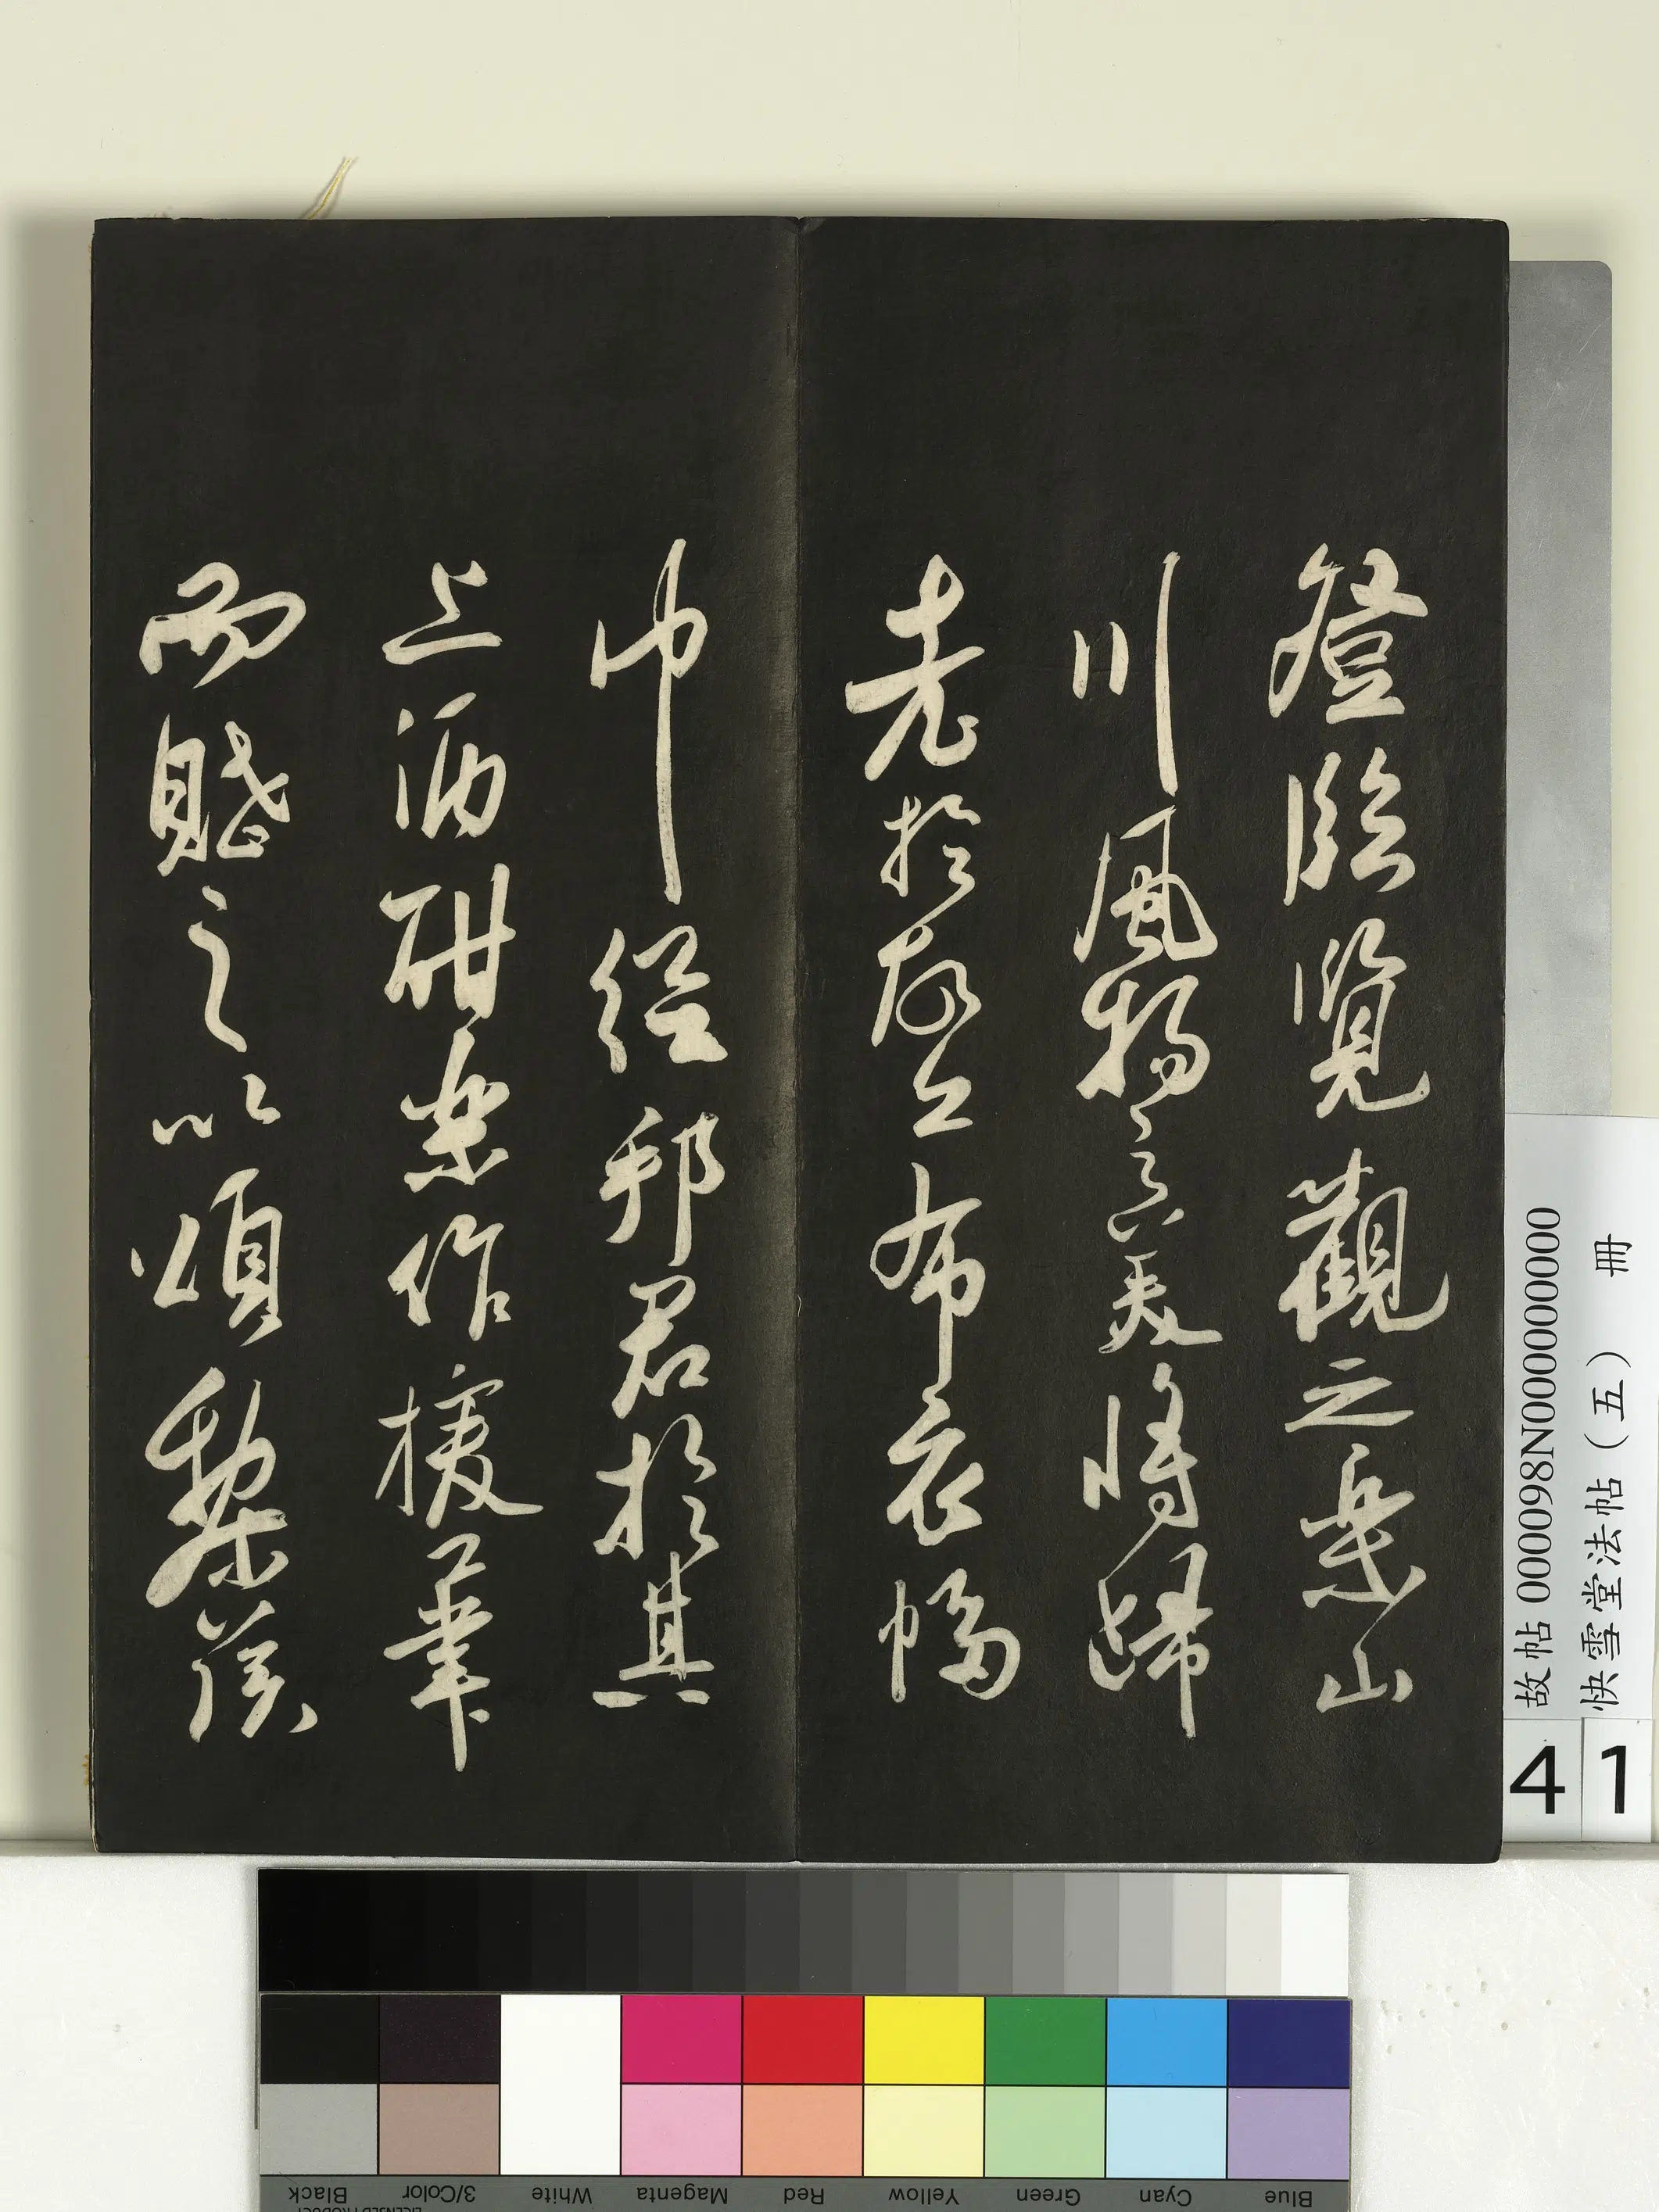 登臨覽觀之樂山
川風物之美將歸
老於故丘布衣幅
巾從邦君於其
上酒酣樂作援筆
而賦之以頌黎侯
故帖 000098N000000000
快雪堂法帖（五） 冊
4 1
Blue Cyan Green Yellow Red Magenta White 3/Color Black